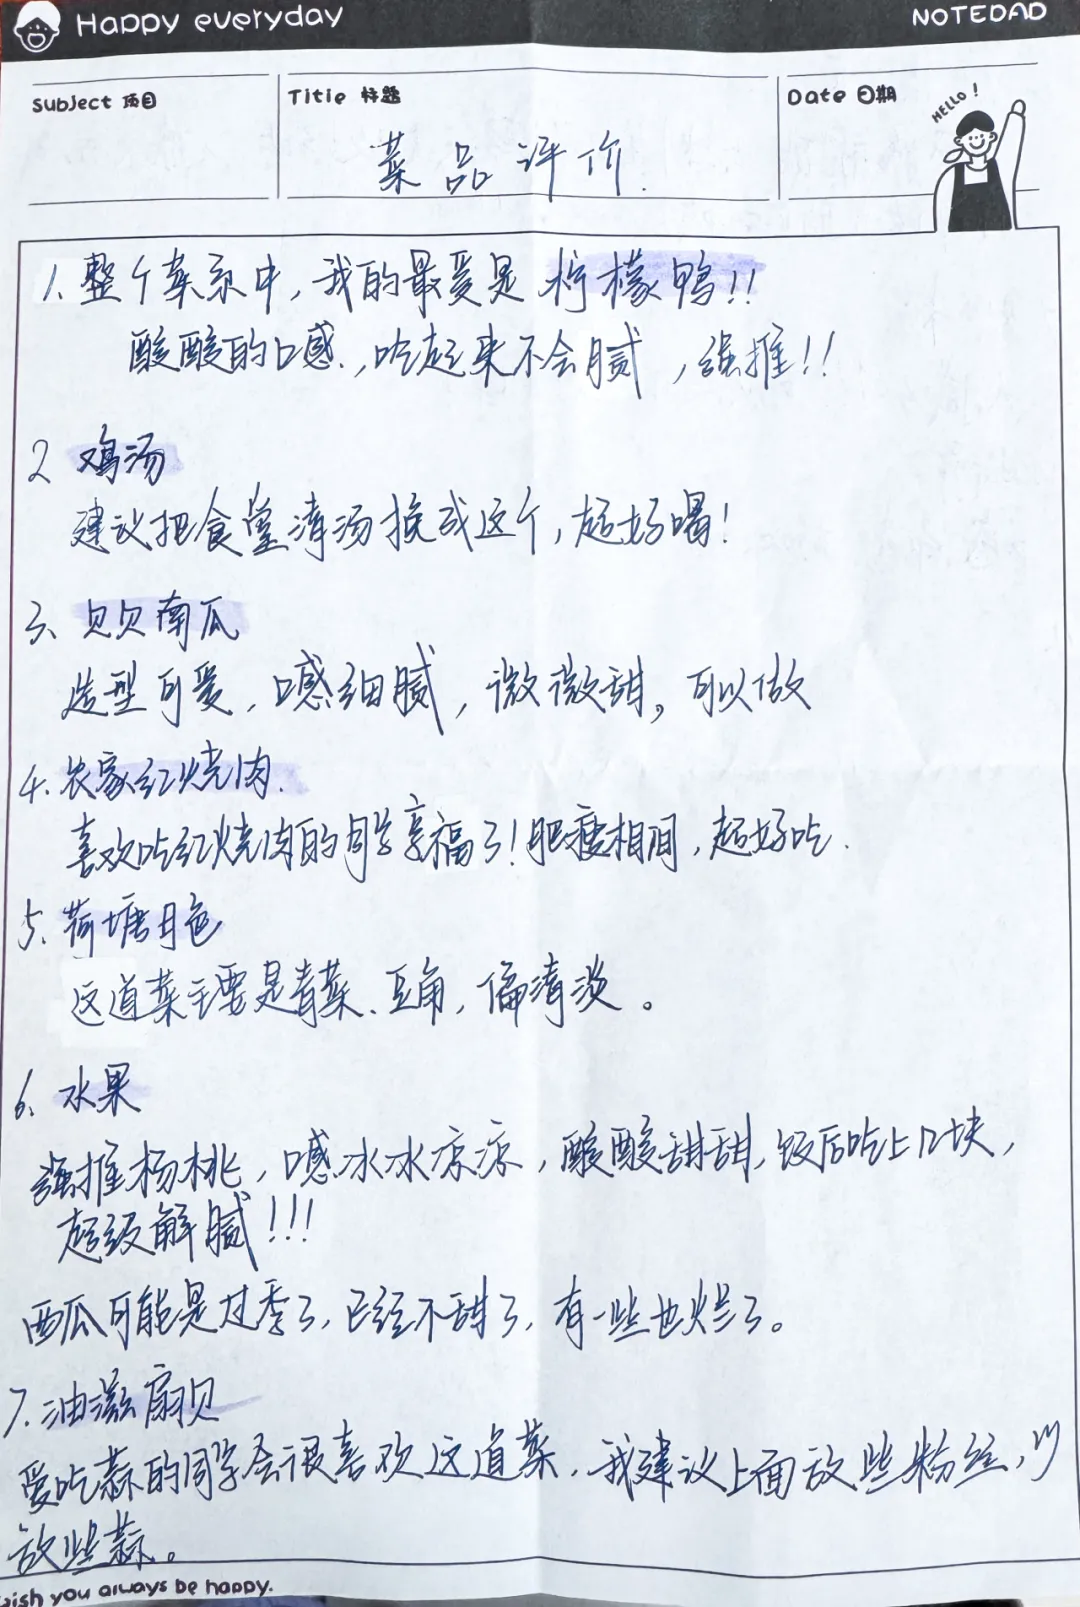 Happy everyday
NOTEDAD
Subject 项目
Title 标题
Date 日期
HELLO!
菜品评价.
1. 整个菜系中,我的最爱是柠檬鸭!!
酸酸的口感.,吃起来不会腻,强推!!
2 鸡汤
建议把食堂清汤换成这个,超好喝!
3、贝贝南瓜
造型可爱,口感细腻,微微甜。可以做
4. 农家红烧肉.
喜欢吃红烧肉的同学享福了!肥瘦相间,超好吃.
5. 荷塘月色
这道菜主要是青菜、豆角,偏清淡。
6. 水果
强推杨桃,口感冰冰凉凉,酸酸甜甜,饭后吃上几块,
超级解腻!!!
西瓜可能是过季了,已经不甜了,有一些也烂了。
7. 油滋扇贝
爱吃蒜的同学会很喜欢这道菜.我建议上面放些粉丝,少
放些蒜。
wish you always be happy.